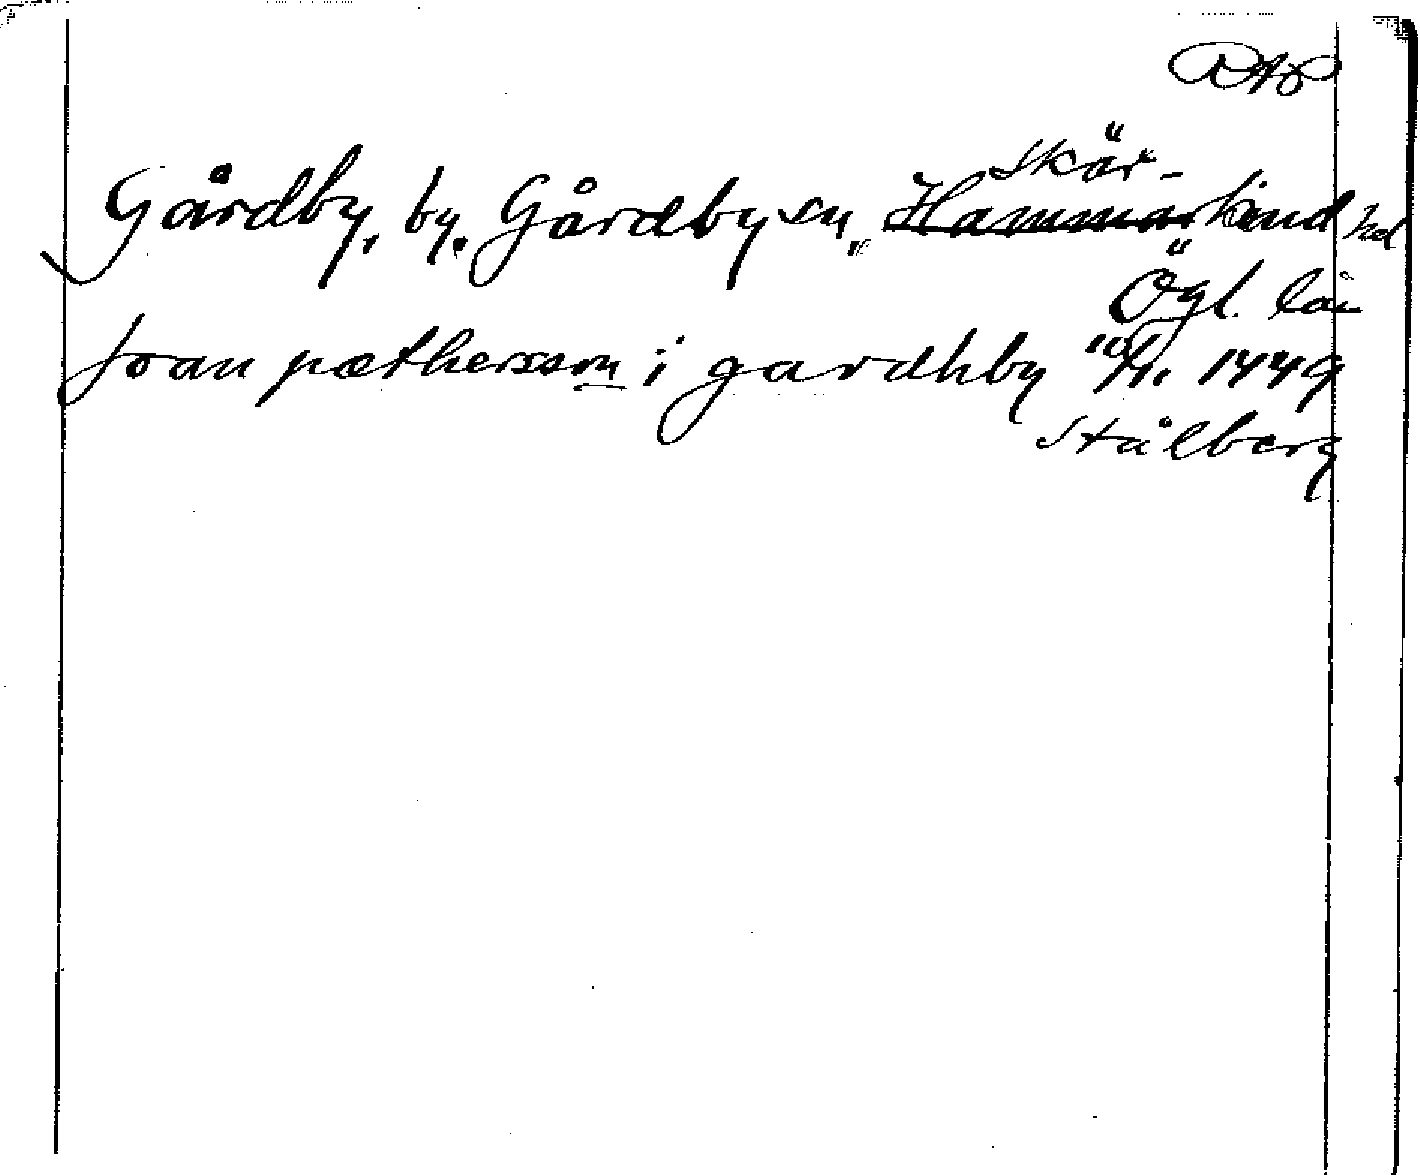 RAp
Gårdby, by, Gårdby sn, Hammarkind hd
Skär-
Ögl. län
Joan pæthersson i gardhby 10/1. 1449
Stålberg